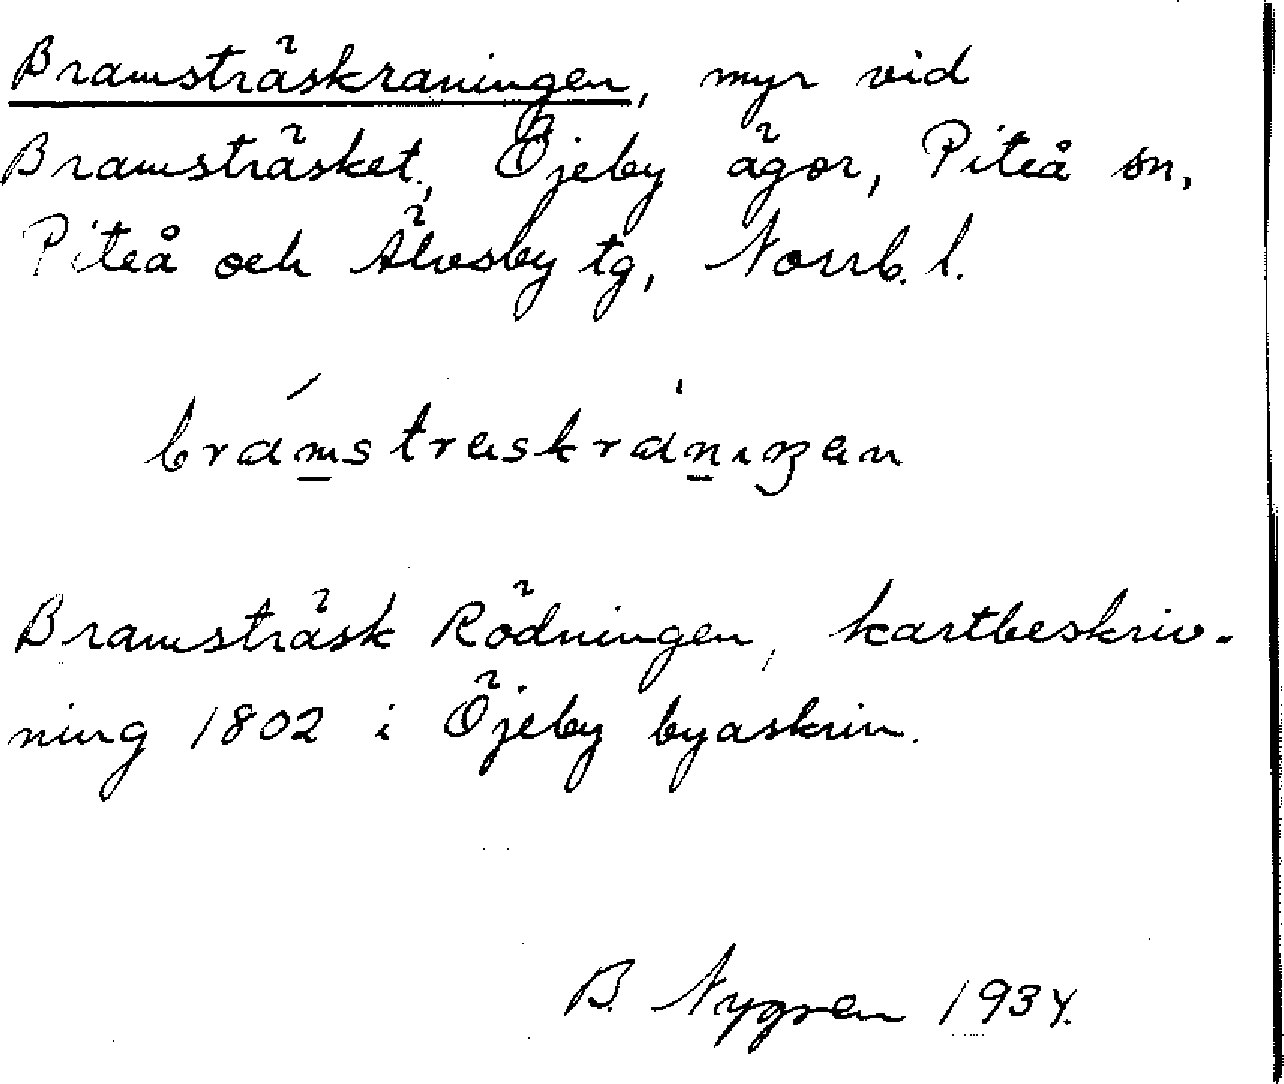 Bramsträskraningen, myr vid
Bramsträsket, Öjeby ägor, Piteå sn,
Piteå och Älvsby tg, Norrb. l.
brámstræskrànıŋæn
Bramsträsk Rödningen, kartbeskriv-
ning 1802 i Öjeby byaskrin.
B. Nygren 1934.